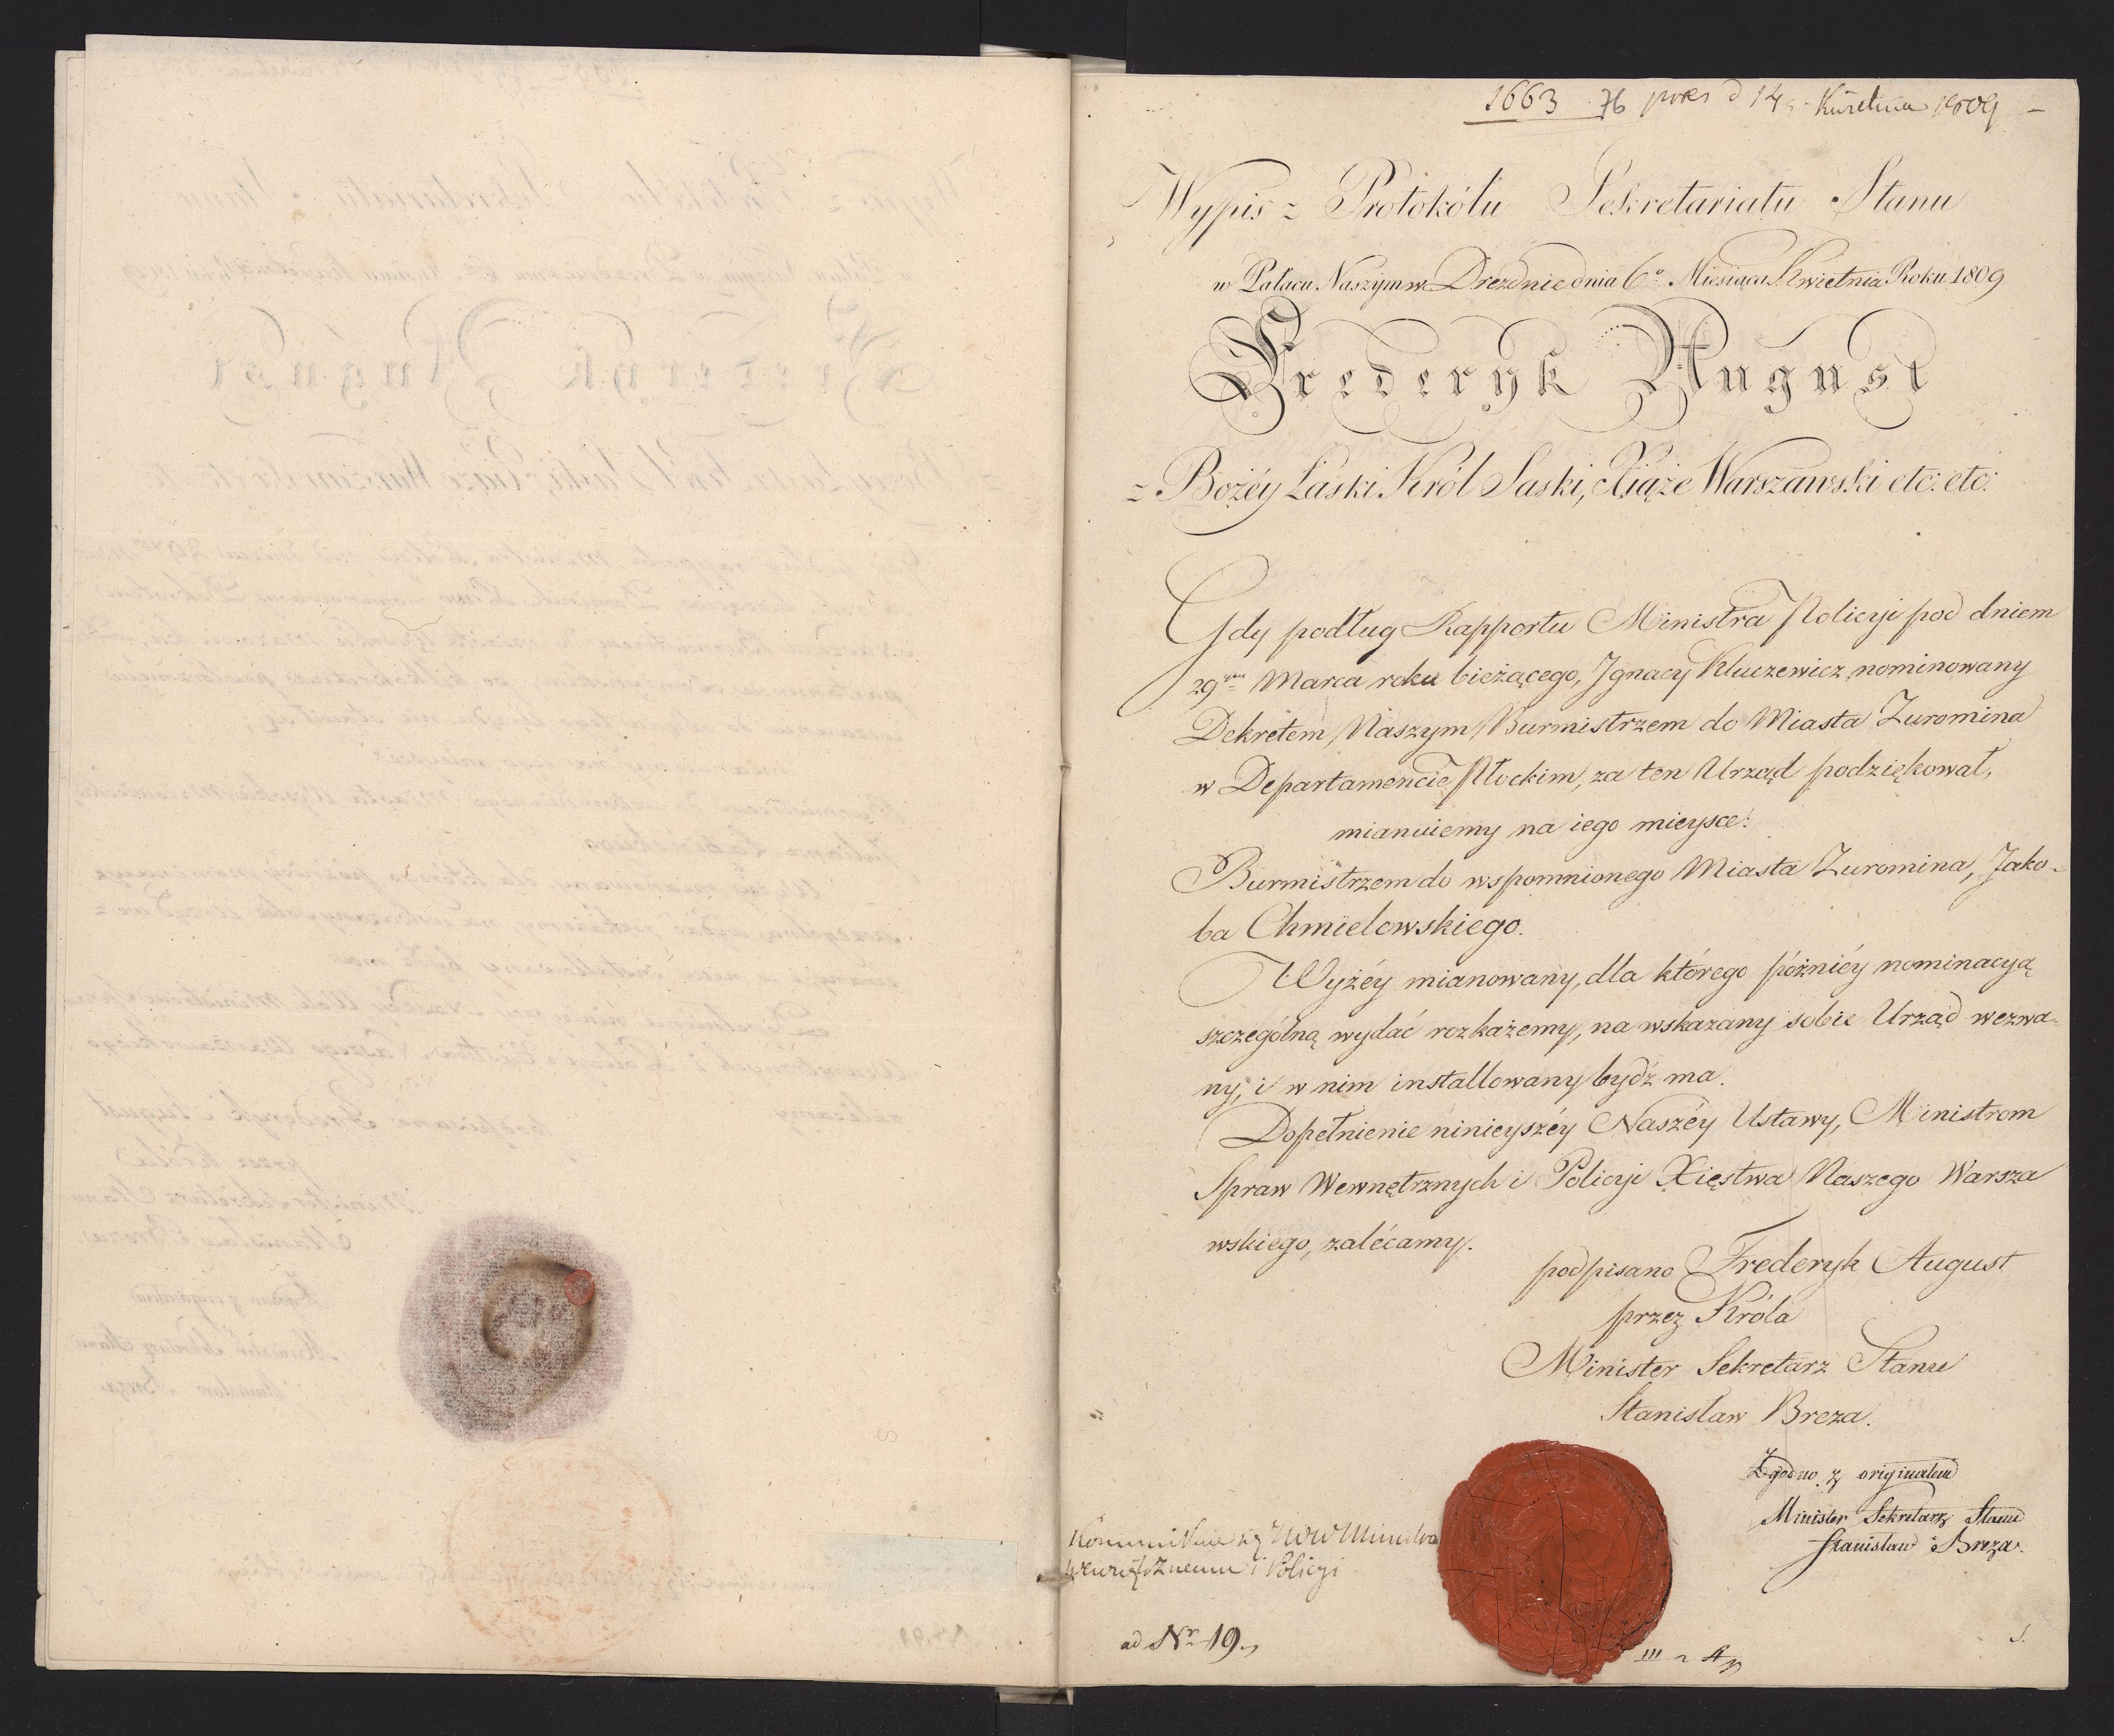 1663 76 praes d 14 Kwietnia 1809
Wypis z Protokółu Sekretariatu Stanu
w Pałacu Naszym w Dreznie dnia 6º Miesiąca Kwietnia Roku 1809
Frederyk August
z Bożéy Łaski Król Saski, Xiąże Warszawski etc: etc:
Gdy podług Rapportu Ministra Policyi pod dniem
29 Marca roku bieżącego, Ignacy Kluczewicz nominowany
Dekretem Naszym Burmistrzem do Miasta Zuromina
w Departamencie Płockim, za ten Urząd podziękował,
mianuiemy na iego mieysce:
Burmistrzem do wspomnionego Miasta Zuromina, Jako-
ba Chmielewskiego.
Wyżéy mianowany, dla którego późniéy nominacyą
szczególną wydać rozkażemy, na wskazany sobie Urząd wezwa-
ny, i w nim installowany bydź ma.
Dopełnienie ninieyszéy Naszéy Ustawy, Ministrom
Spraw Wewnętrznych i Policyi Xięstwa Naszego Warsza
wskiego, zalécamy.
podpisano Frederyk August
przez Króla
Minister Sekretarz Stanu
Stanisław Breza.
Zgodno z originałem
Minister Sekretarz Stanu
Stanisław Breza.
Wewnętrznemu i Policyi
ad Nr 19.
III